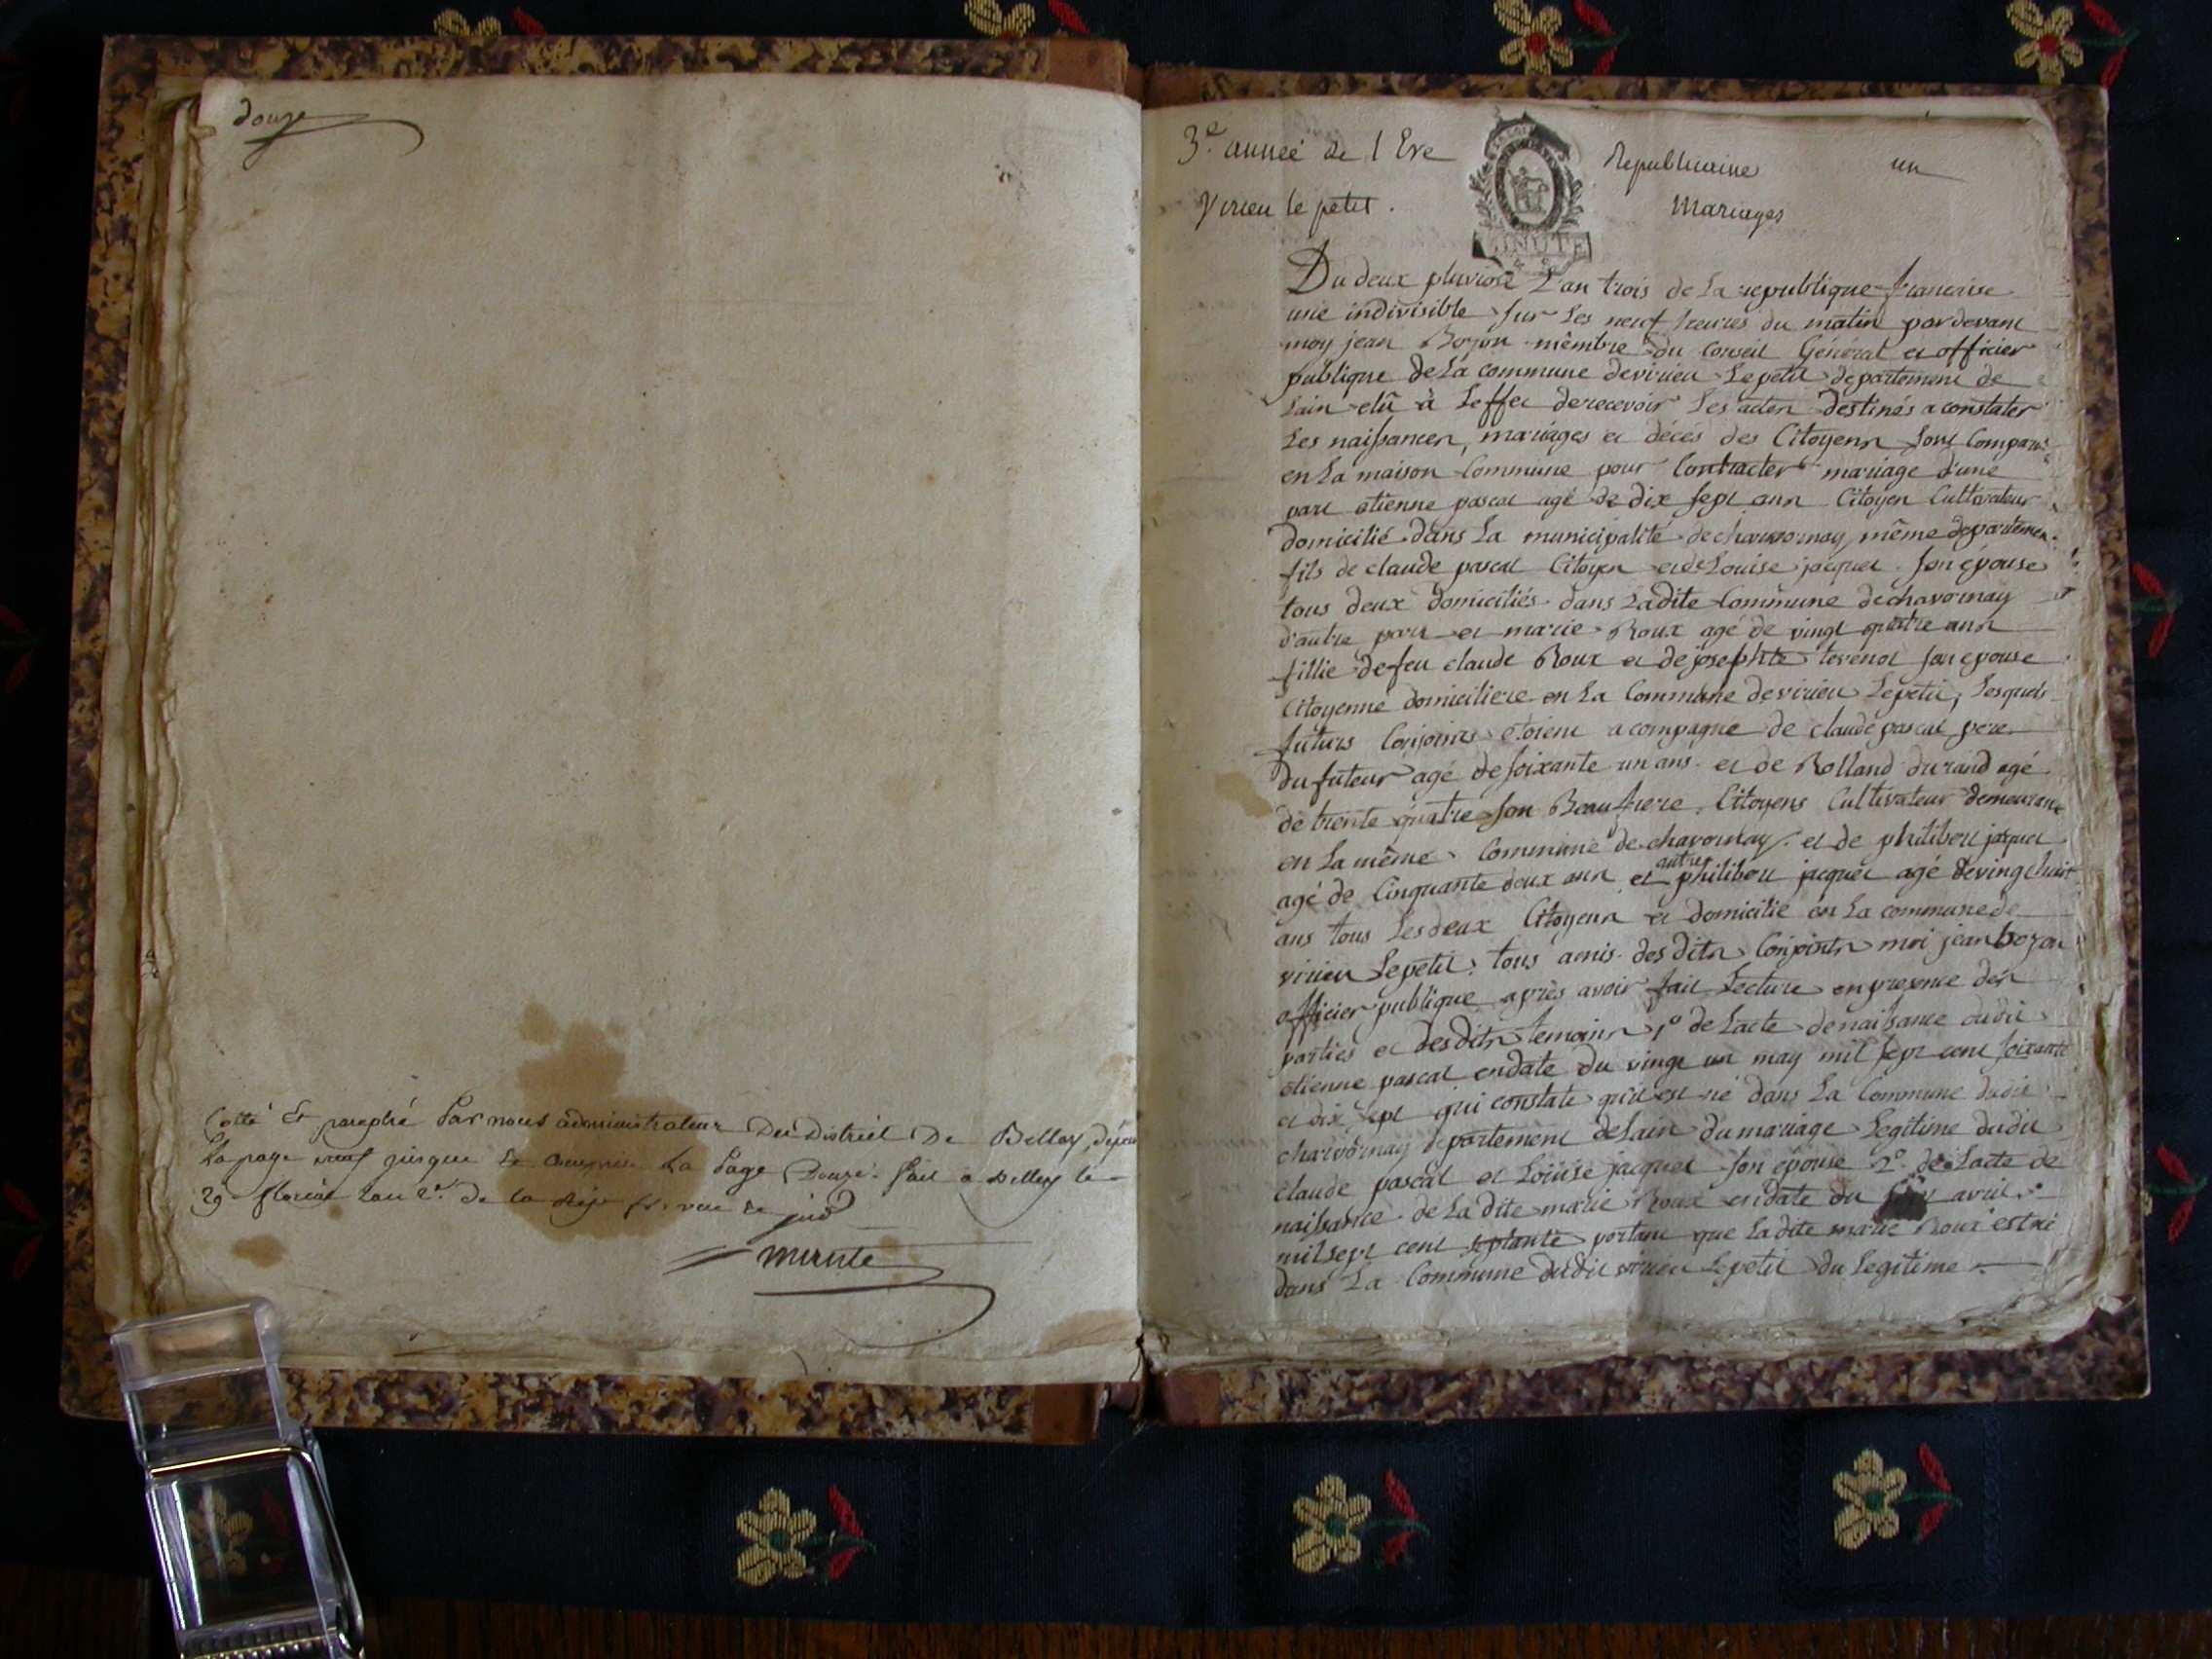 douze
Cotté & paraphé Par nous administrateur Du District De Belley, depuis
la page jusques & Compris la Page Douze. fait a Belley le
29 floréal l'an 2e. De la rép. fr. une &
3e. année de l Ere Republicaine un
Virieu le petit. Mariages
MINUTE
Du deux pluviose L'an trois de La republique francaise
une indivisible sur Les neuf heures du matin pardevant
moy jean Bozon mêmbre du Conseil Général et officier
publique de La commune devirieu Lepetit departement de
Lain elû à Leffet derecevoir Les actes destinés a constater
Les naissances, mariages et décés des Citoyens sont Comparus
en La maison Commune pour Contracter mariage d'une
part etienne pascal agé de dix sept ans Citoyen Cultivateur
domicilié dans La municipalité de charvornay même departement
fils de claude pascal Citoyen et de Louise jacquet son épouse
tous deux domiciliés dans Ladite Commune dechavornay
d'autre part et marie Roux agé de vingt quatre ans
fillie defeu claude Roux et de josephte tevenot son epouse
Citoyenne domiciliere en La Commune devirieu Lepetit, Lesquels
futurs Conjoints etoient acompagne de claude pascal pere
du futeur agé desoixante un ans et de Rolland durand agé
de trente quatre son Beaufrere, Citoyens Cultivateur demeurant
en La même Commune de chavornay et de philibert jacquet
agé de Cinquante deux ans et autre philibert jacquet agé devingt huit
ans tous Lesdeux Citoyens et domicilié en La commune de
virieu Lepetit, tous amis des dits Conjoints moi jean bozon
officier publique après avoir fait Lecture en presence des
parties et desdits temoins 1o de Lacte denaissance dudit
etienne pascal endate du vingt un may mil sept cent soixante
et dix sept qui constate qu'il est né dans La Commune dudit
charvornay departement de Lain du mariage Legitime dudit
claude pascal et Louise jacquet son épouse 2o de Lacte de
naissance de La dite marie Roux endate du avril
mil sept cent septante portant que Ladite marie Roux est né
dans La Commune dudit virieu Lepetit du Legitime